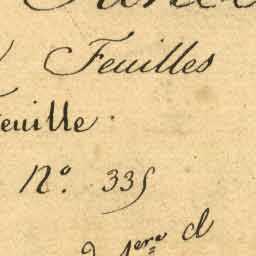 Feuilles
Feuille.
Nº. 335
1ere d